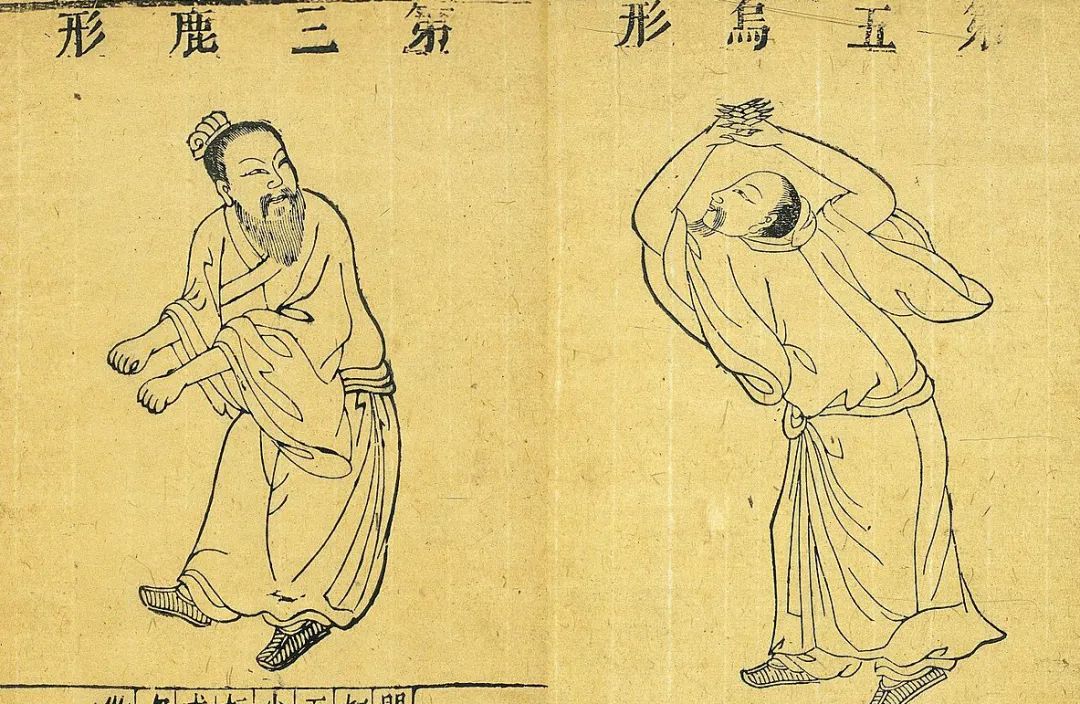 第三鹿形
第五鳥形